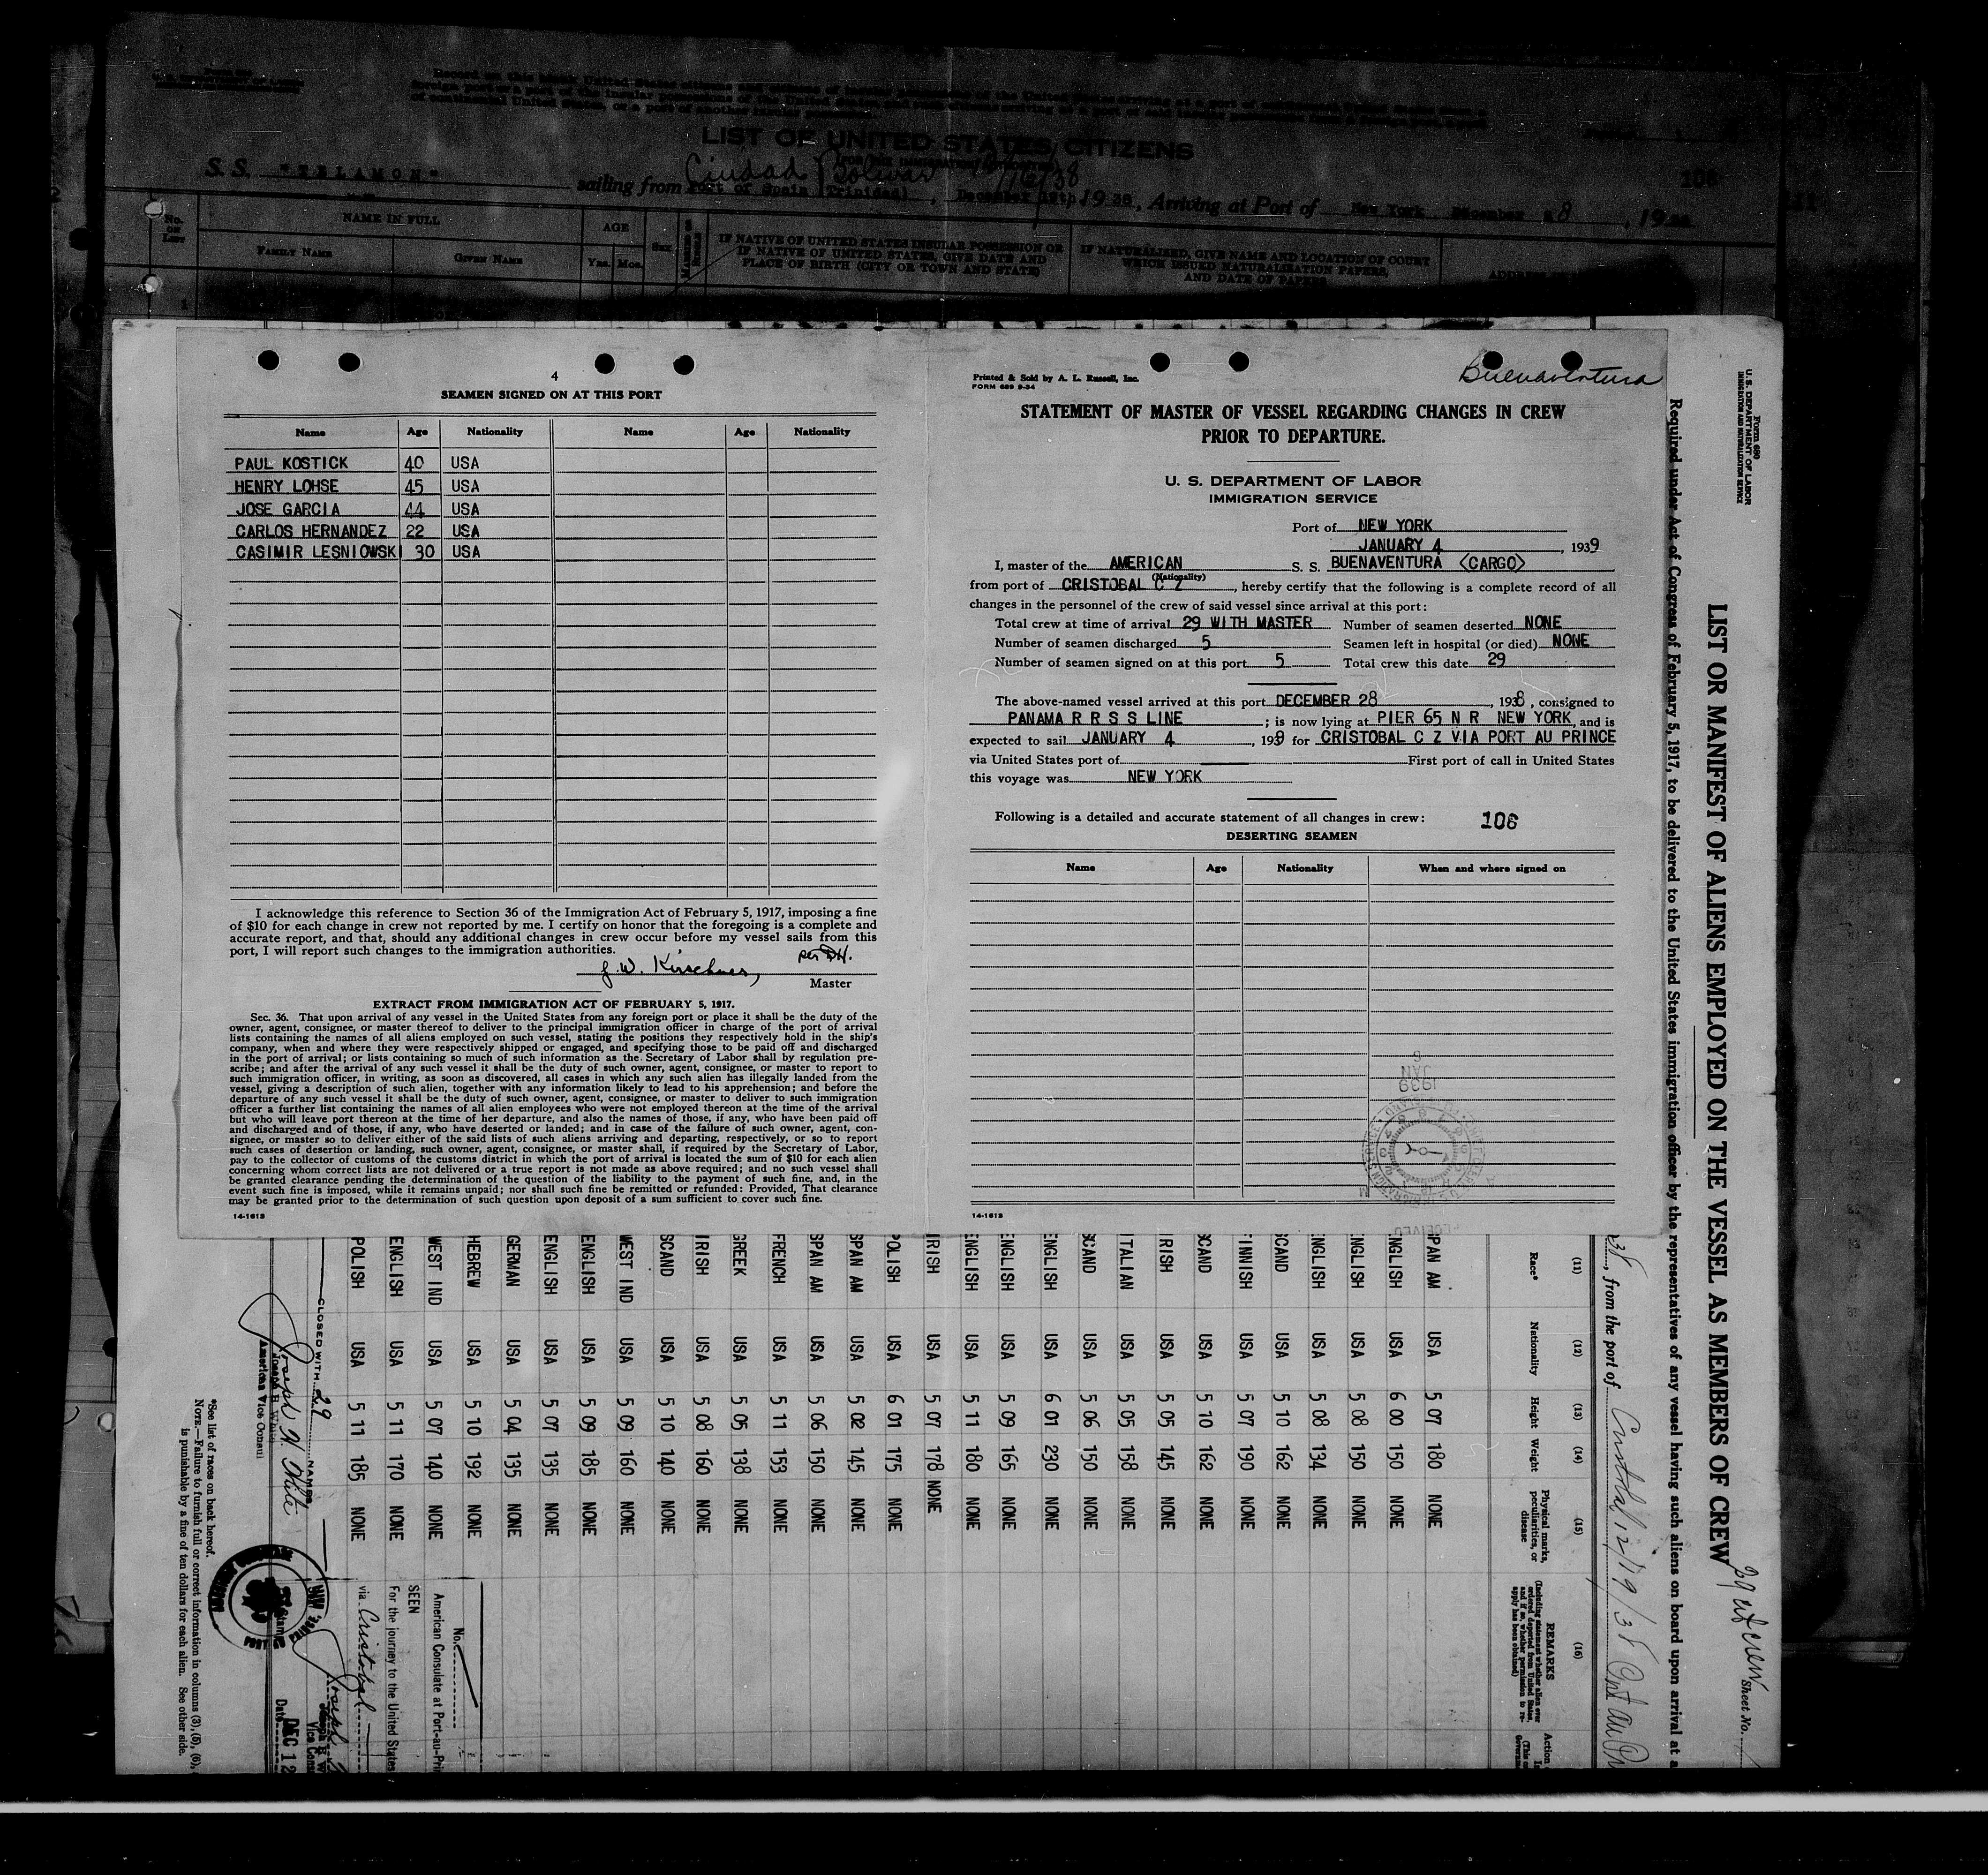 LIST OF UNITED STATES CITIZENS
S. S. "TELAMON" sailing from Port of Spain (Trinidad), December 19 38, Arriving at Port of New York December 8, 19
Ciudad Bolivar 12/16/38
106
No. ON LIST
NAME IN FULL
FAMILY NAME GIVEN NAME
AGE
YRS. MOS.
SEX
IF NATIVE OF UNITED STATES INSULAR POSSESSION OR
IF NATIVE OF UNITED STATES, GIVE DATE AND
PLACE OF BIRTH (CITY OR TOWN AND STATE)
IF NATURALIZED, GIVE NAME AND LOCATION OF COURT
WHICH ISSUED NATURALIZATION PAPERS,
AND DATE OF PAPERS
1
4
SEAMEN SIGNED ON AT THIS PORT
Name Age Nationality Name Age Nationality
PAUL KOSTICK 40 USA
HENRY LOHSE 45 USA
JOSE GARCIA 44 USA
CARLOS HERNANDEZ 22 USA
CASIMIR LESNIOWSKI 30 USA
I acknowledge this reference to Section 36 of the Immigration Act of February 5, 1917, imposing a fine
of $10 for each change in crew not reported by me. I certify on honor that the foregoing is a complete and
accurate report, and that, should any additional changes in crew occur before my vessel sails from this
port, I will report such changes to the immigration authorities.
J. W. Kirschner, per
Master
EXTRACT FROM IMMIGRATION ACT OF FEBRUARY 5, 1917.
Sec. 36. That upon arrival of any vessel in the United States from any foreign port or place it shall be the duty of the
owner, agent, consignee, or master thereof to deliver to the principal immigration officer in charge of the port of arrival
lists containing the names of all aliens employed on such vessel, stating the positions they respectively hold in the ship's
company, when and where they were respectively shipped or engaged, and specifying those to be paid off and discharged
in the port of arrival; or lists containing so much of such information as the Secretary of Labor shall by regulation pre-
scribe; and after the arrival of any such vessel it shall be the duty of such owner, agent, consignee, or master to report to
such immigration officer, in writing, as soon as discovered, all cases in which any such alien has illegally landed from the
vessel, giving a description of such alien, together with any information likely to lead to his apprehension; and before the
departure of any such vessel it shall be the duty of such owner, agent, consignee, or master to deliver to such immigration
officer a further list containing the names of all alien employees who were not employed thereon at the time of the arrival
but who will leave port thereon at the time of her departure, and also the names of those, if any, who have been paid off
and discharged and of those, if any, who have deserted or landed; and in case of the failure of such owner, agent, con-
signee, or master so to deliver either of the said lists of such aliens arriving and departing, respectively, or so to report
such cases of desertion or landing, such owner, agent, consignee, or master shall, if required by the Secretary of Labor,
pay to the collector of customs of the customs district in which the port of arrival is located the sum of $10 for each alien
concerning whom correct lists are not delivered or a true report is not made as above required; and no such vessel shall
be granted clearance pending the determination of the question of the liability to the payment of such fine, and, in the
event such fine is imposed, while it remains unpaid; nor shall such fine be remitted or refunded: Provided, That clearance
may be granted prior to the determination of such question upon deposit of a sum sufficient to cover such fine.
14-1613
Printed & Sold by A. L. Russell, Inc.
FORM 689 9-34
Buenaventura
STATEMENT OF MASTER OF VESSEL REGARDING CHANGES IN CREW
PRIOR TO DEPARTURE.
U. S. DEPARTMENT OF LABOR
IMMIGRATION SERVICE
Port of NEW YORK
JANUARY 4, 1939
I, master of the AMERICAN S. S. BUENAVENTURA (CARGO)
(Nationality)
from port of CRISTOBAL C Z, hereby certify that the following is a complete record of all
changes in the personnel of the crew of said vessel since arrival at this port:
Total crew at time of arrival 29 WITH MASTER Number of seamen deserted NONE
Number of seamen discharged 5 Seamen left in hospital (or died) NONE
Number of seamen signed on at this port 5 Total crew this date 29
The above-named vessel arrived at this port DECEMBER 28, 1938, consigned to
PANAMA R R S S LINE; is now lying at PIER 65 N R NEW YORK, and is
expected to sail JANUARY 4, 1939 for CRISTOBAL C Z VIA PORT AU PRINCE
via United States port of First port of call in United States
this voyage was NEW YORK
Following is a detailed and accurate statement of all changes in crew: 106
DESERTING SEAMEN
Name Age Nationality When and where signed on
JAN
1939
14-1613
Form 680
U. S. DEPARTMENT OF LABOR
IMMIGRATION AND NATURALIZATION SERVICE
LIST OR MANIFEST OF ALIENS EMPLOYED ON THE VESSEL AS MEMBERS OF CREW
29 Sheet No.
Required under Act of Congress of February 5, 1917, to be delivered to the United States immigration officer by the representatives of any vessel having such aliens on board upon arrival at a
, from the port of Cristobal 12/19/38
(11) (12) (13) (14) (15) (16)
Race* Nationality Height Weight Physical marks, peculiarities, or disease REMARKS Action
SPAN AM USA 5 07 180 NONE
ENGLISH USA 6 00 150 NONE
ENGLISH USA 5 08 150 NONE
ENGLISH USA 5 08 134 NONE
SCAND USA 5 10 162 NONE
FINNISH USA 5 07 190 NONE
SCAND USA 5 10 162 NONE
IRISH USA 5 05 145 NONE
ITALIAN USA 5 05 158 NONE
SCAND USA 5 06 150 NONE
ENGLISH USA 6 01 230 NONE
ENGLISH USA 5 09 165 NONE
ENGLISH USA 5 11 180 NONE
IRISH USA 5 07 178 NONE
POLISH USA 6 01 175 NONE
SPAN AM USA 5 02 145 NONE
SPAN AM USA 5 06 150 NONE
FRENCH USA 5 11 153 NONE
GREEK USA 5 05 138 NONE
IRISH USA 5 08 160 NONE
SCAND USA 5 10 140 NONE
WEST IND USA 5 09 160 NONE
ENGLISH USA 5 09 185 NONE
ENGLISH USA 5 07 135 NONE
GERMAN USA 5 04 135 NONE
HEBREW USA 5 10 192 NONE
WEST IND USA 5 07 140 NONE
ENGLISH USA 5 11 170 NONE
POLISH USA 5 11 185 NONE
CLOSED WITH 29 NAMES
Joseph H. White
American Vice Consul
No.
American Consulate at Port-au-Prin
SEEN
For the journey to the United States
via Cristobal
Date DEC 12
*See list of races on back hereof.
NOTE.—Failure to furnish full or correct information in columns (3), (5), (6),
is punishable by a fine of ten dollars for each alien. See other side.